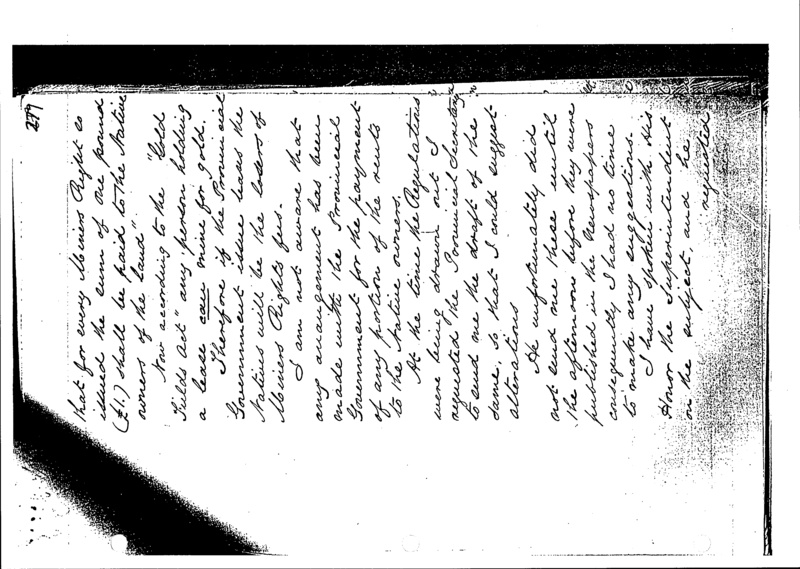 279
that for every Miners Right so
issued the sum of one pound
(£1.) shall be paid to the Native
owners of the land".
Now according to the "Gold
Fields Act" any person holding
a lease can mine for gold.
Therefore if the Provincial
Government issue leases the
Natives will be the losers of
Miners Rights fees.
I am not aware that
any arrangement has been
made with the Provincial
Government for the payment
of any portion of the rents
to the Native owners.
At the time the Regulations
were being drawn out I
requested the Provincial Secretary
to send me the draft of the
same, so that I could suggest
alterations
He unfortunately did
not send me these until
the afternoon before they were
published in the Newspapers
consequently I had no time
to make any suggestions.
I have spoken with His
Honor the Superintendent
on the subject, and he
requested